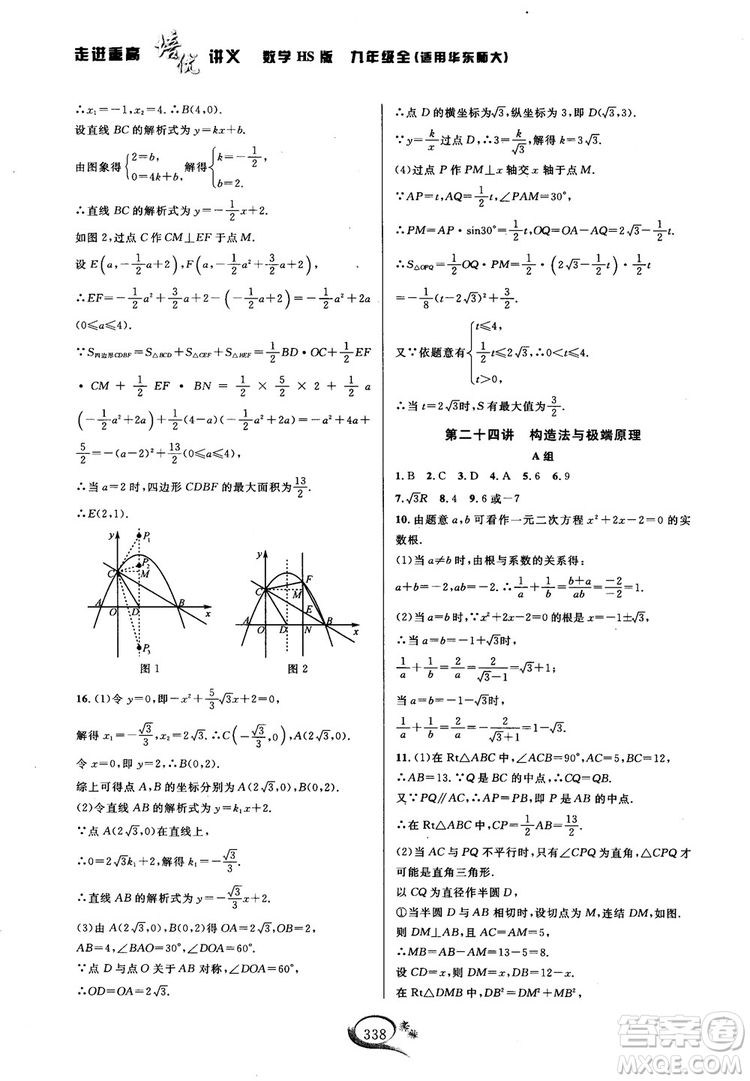 走进重高 培优 讲义 数学 HS 版 九年级全(适用华东师大)
∴x₁=-1,x₂=4.∴B(4,0).
设直线 BC 的解析式为 y=kx+b.
由图象得{2=b, 0=4k+b,解得{k=-1/2, b=2.
∴直线 BC 的解析式为 y=-1/2x+2.
如图 2,过点 C 作 CM⊥EF 于点 M.
设 E(a,-1/2a+2),F(a,-1/2a²+3/2a+2).
∴EF=-1/2a²+3/2a+2-(-1/2a+2)=-1/2a²+2a
(0≤a≤4).
∵S四边形CDBF=S△BCD+S△CEF+S△BEF=1/2BD·OC+1/2EF
·CM+1/2EF·BN=1/2×5/2×2+1/2a
(-1/2a²+2a)+1/2(4-a)(-1/2a²+2a)=-a²+4a+
5/2=-(a-2)²+13/2(0≤a≤4).
∴当 a=2 时,四边形 CDBF 的最大面积为13/2.
∴E(2,1).
y P₁ P₂ C M A O D B x P₃
图 1
y C F M E A O D N B x
图 2
16.(1)令 y=0,即-x²+5/3√3x+2=0,
解得 x₁=-√3/3,x₂=2√3.∴C(-√3/3,0),A(2√3,0).
令 x=0,即 y=2,∴B(0,2).
综上可得点 A,B 的坐标分别为 A(2√3,0),B(0,2).
(2)令直线 AB 的解析式为 y=k₁x+2,
∵点 A(2√3,0)在直线上,
∴0=2√3k₁+2,解得 k₁=-√3/3.
∴直线 AB 的解析式为 y=-√3/3x+2.
(3)由 A(2√3,0),B(0,2)得 OA=2√3,OB=2,
AB=4,∠BAO=30°,∠DOA=60°.
∵点 D 与点 O 关于 AB 对称,∠DOA=60°,
∴OD=OA=2√3.
∴点 D 的横坐标为√3,纵坐标为 3,即 D(√3,3).
∵y=k/x过点 D,∴3=k/√3,解得 k=3√3.
(4)过点 P 作 PM⊥x 轴交 x 轴于点 M.
∵AP=t,AQ=1/2t,∠PAM=30°,
∴PM=AP·sin30°=1/2t,OQ=OA-AQ=2√3-1/2t.
∴S△OPQ=1/2OQ·PM=1/2·(2√3-1/2t)·1/2t
=-1/8(t-2√3)²+3/2.
又∵依题意有{t≤4, 1/2t≤2√3,解得 0<t≤4. t>0,
∴当 t=2√3时,S 有最大值为3/2.
第二十四讲 构造法与极端原理
A 组
1.B 2.C 3.D 4.A 5.6 6.9
7.√3R 8.4 9.6 或-7
10.由题意 a,b 可看作一元二次方程 x²+2x-2=0 的实
数根.
(1)当 a≠b 时,由根与系数的关系得:
a+b=-2,ab=-2,∴1/a+1/b=(b+a)/ab=-2/-2=1.
(2)当 a=b 时,∵x²+2x-2=0 的根为 x=-1±√3,
∴当 a=b=√3-1 时,
1/a+1/b=2/a=2/(√3-1)=√3+1.
当 a=b=-√3-1 时,
1/a+1/b=2/a=-2/(√3+1)=1-√3.
11.(1)在 Rt△ABC 中,∠ACB=90°,AC=5,BC=12,
∴AB=13.∵Q 是 BC 的中点,∴CQ=QB.
又∵PQ∥AC,∴AP=PB,即 P 是 AB 的中点.
∴在 Rt△ABC 中,CP=1/2AB=13/2.
(2)当 AC 与 PQ 不平行时,只有∠CPQ 为直角,△CPQ 才
可能是直角三角形.
以 CQ 为直径作半圆 D,
①当半圆 D 与 AB 相切时,设切点为 M,连结 DM,
则 DM⊥AB,且 AC=AM=5.
∴MB=AB-AM=13-5=8.
设 CD=x,则 DM=x,DB=12-x.
在 Rt△DMB 中,DB²=DM²+MB²,
338
答案